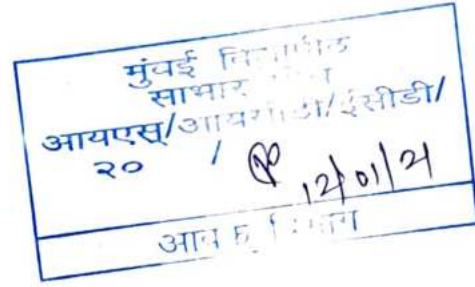 मुंबई
साभार
आयएस्/आयसीडी/ईसीडी/
२० /
12/01/21
आवक विभाग